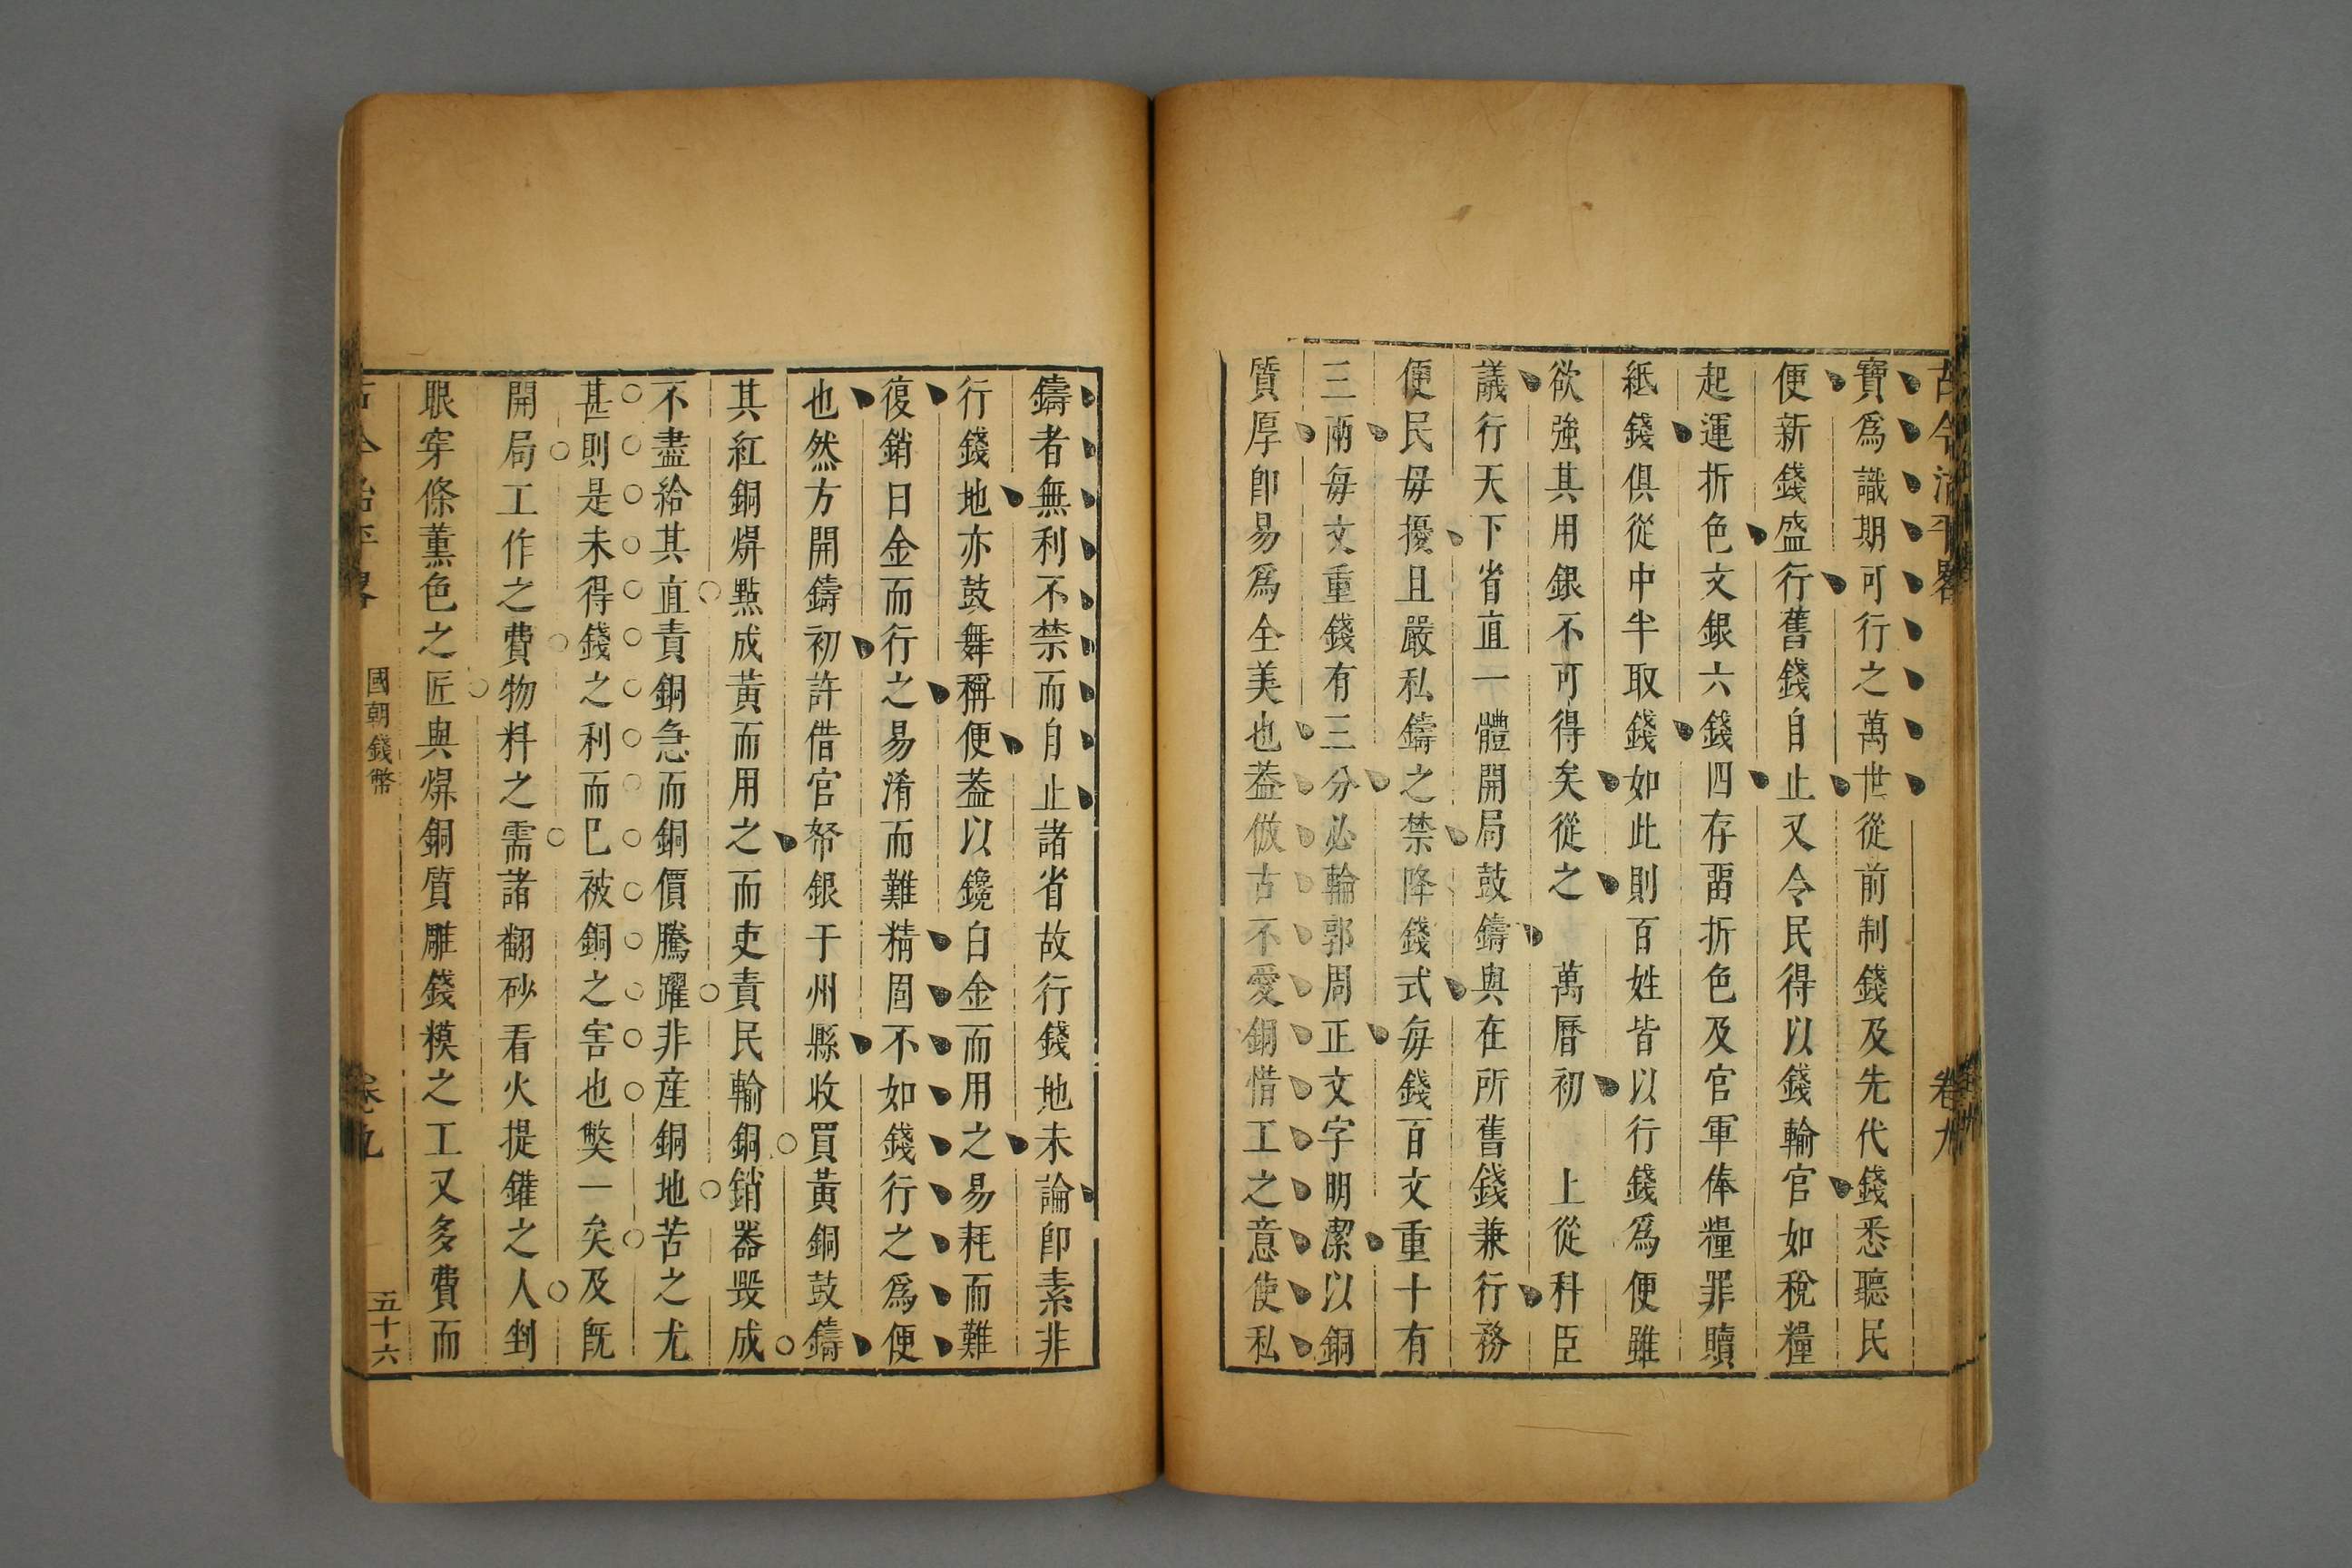 古今治平畧 卷九
寶爲識期可行之萬世從前制錢及先代錢悉聽民
便新錢盛行舊錢自止又令民得以錢輸官如稅糧
起運折色文銀六錢四存畱折色及官軍俸糧罪贖
紙錢俱從中半取錢如此則百姓皆以行錢爲便雖
欲強其用銀不可得矣從之 萬曆初 上從科臣
議行天下省直一體開局鼓鑄與在所舊錢兼行務
便民毋擾且嚴私鑄之禁降錢式每錢百文重十有
三兩每文重錢有三分必輪郭周正文字明潔以銅
質厚卽易爲全美也葢倣古不愛銅惜工之意使私
鑄者無利不禁而自止諸省故行錢地未論卽素非
行錢地亦鼓舞稱便葢以鏡白金而用之易耗而難
復銷日金而行之易淆而難精固不如錢行之爲便
也然方開鑄初許借官帑銀于州縣收買黃銅鼓鑄
其紅銅煤點成黃而用之而吏責民輸銅銷器毀成
不盡給其直責銅急而銅價騰躍非産銅地苦之尤
甚則是未得錢之利而巳被銅之害也獘一矣及旣
開局工作之費物料之需諸翻砂看火提鑵之人剉
眼穿條薰色之匠與煤銅質雕錢模之工又多費而
古今治平畧 國朝錢幣 卷九 五十六